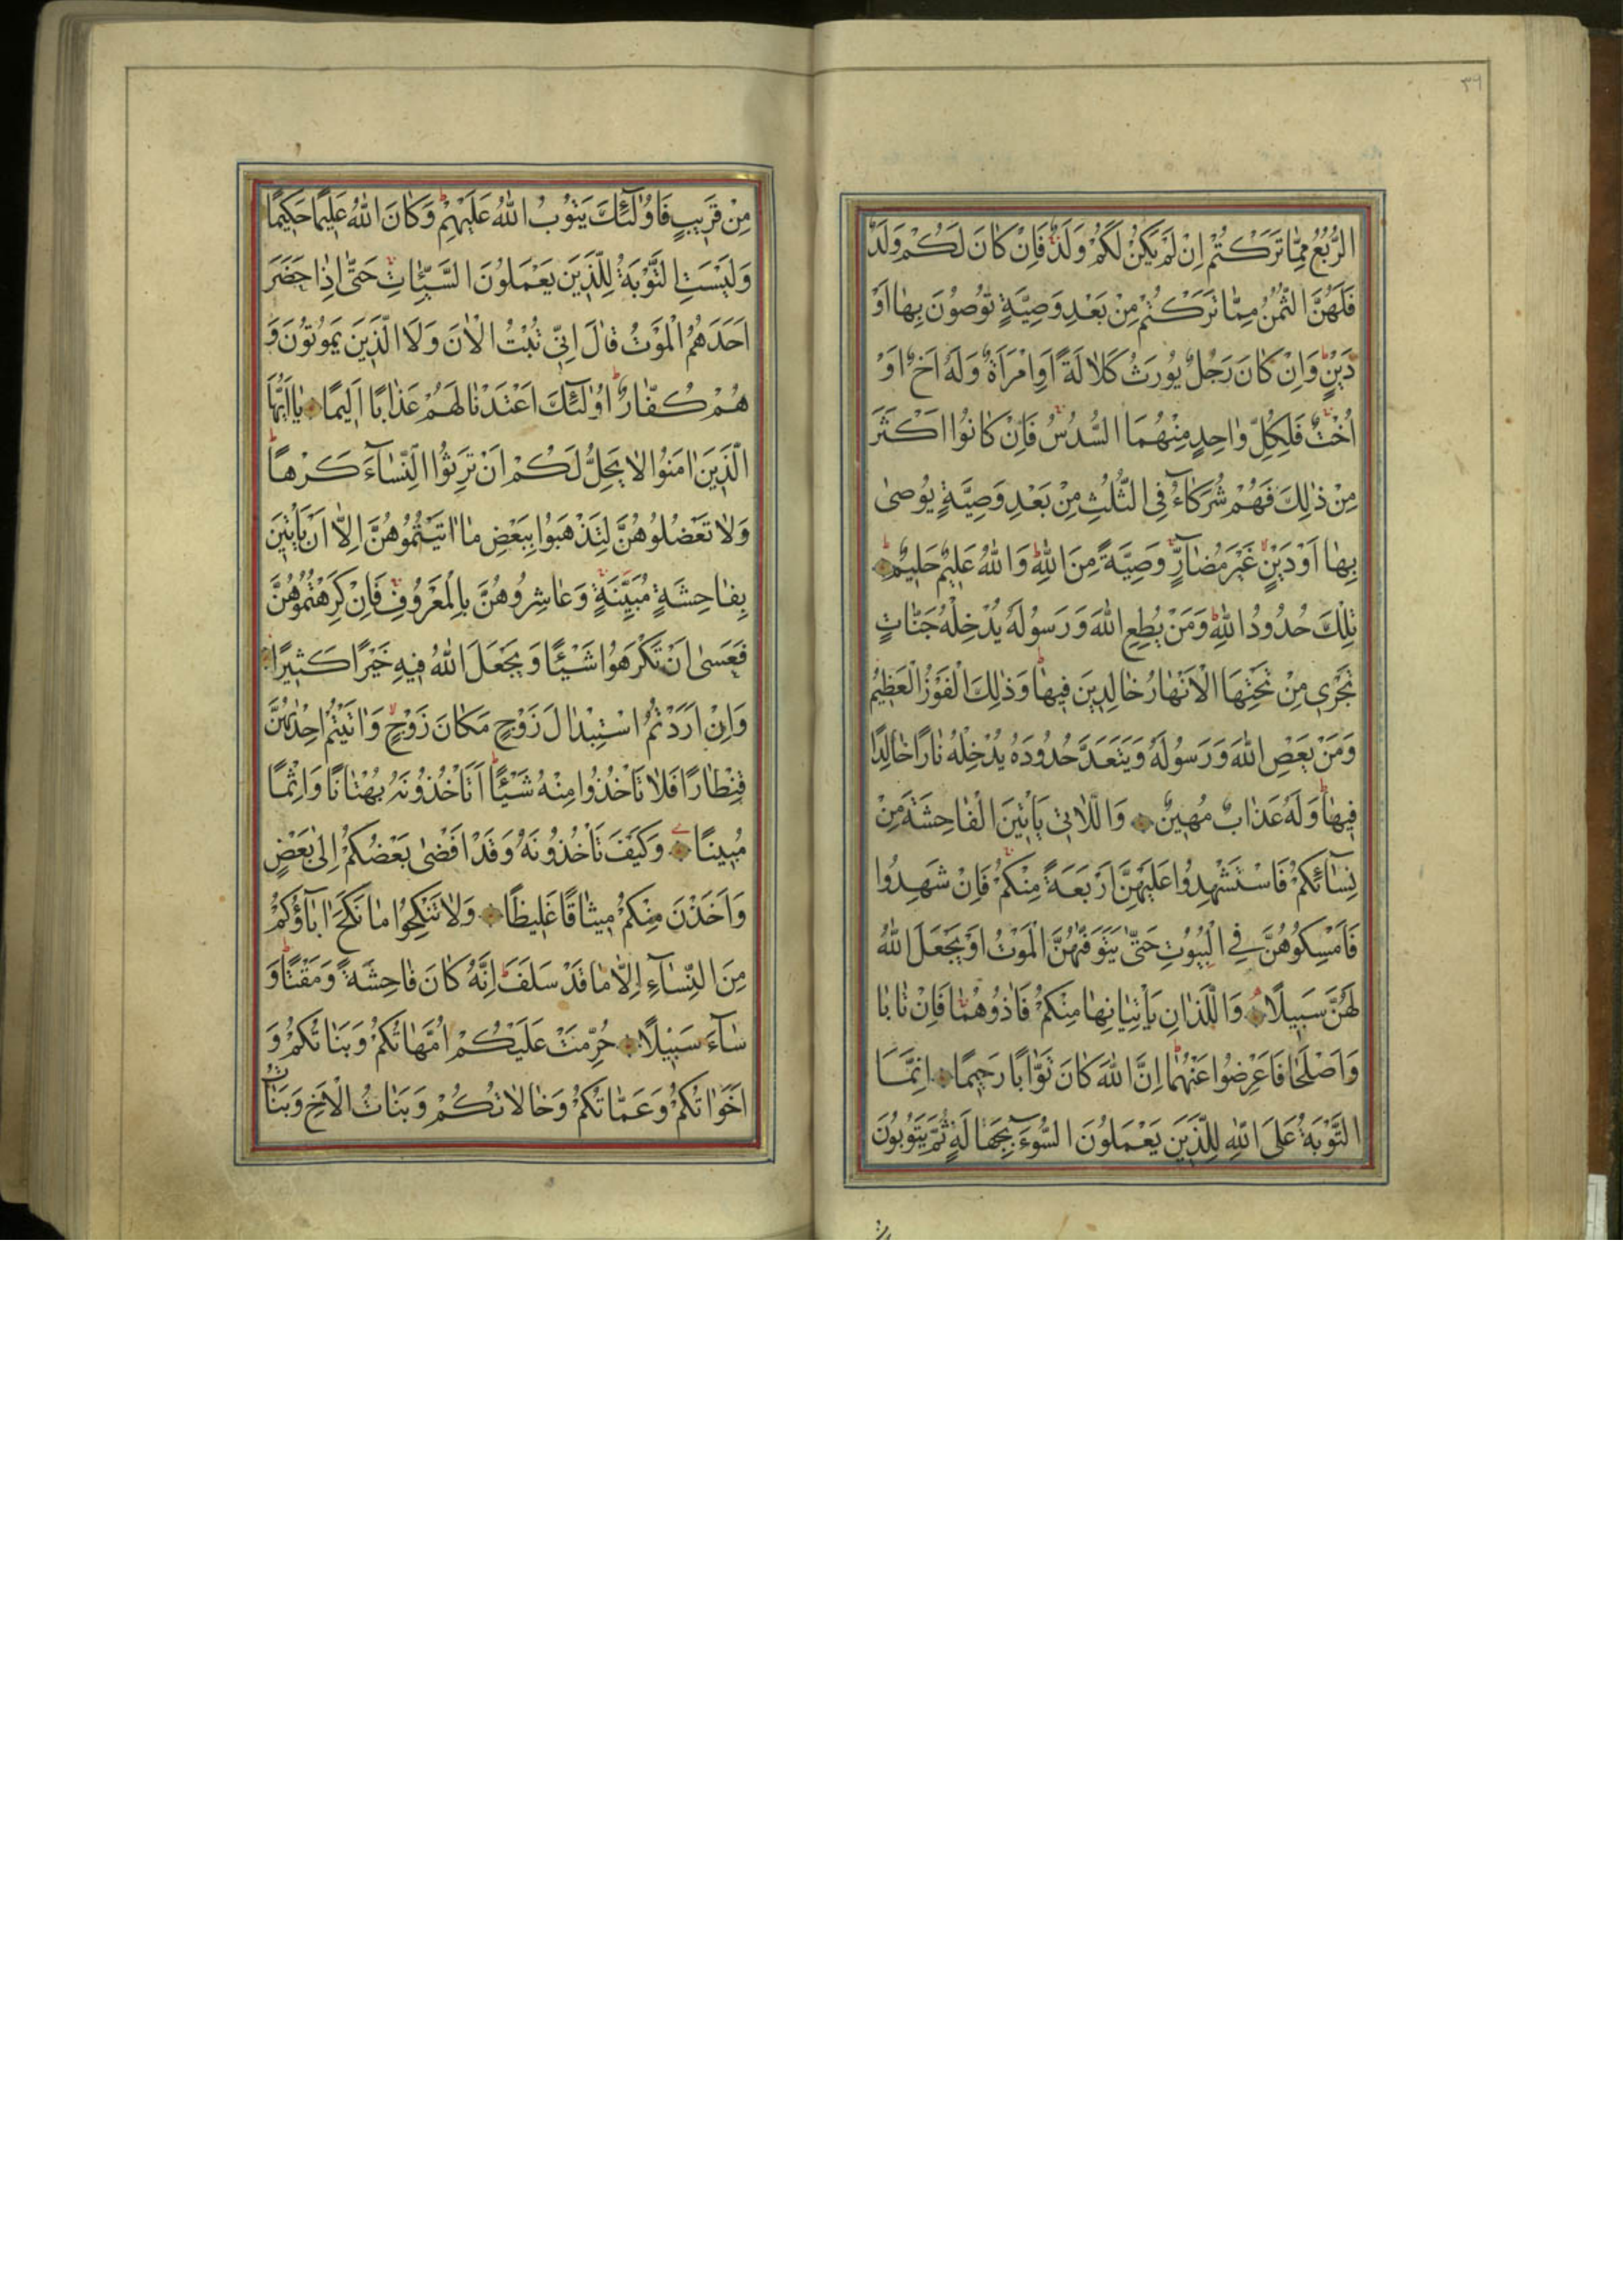 ٣٦
الرُّبُعُ مِمَّا تَرَكْتُمْ اِنْ لَمْ يَكُنْ لَكُمْ وَلَدٌ فَاِنْ كَانَ لَكُمْ وَلَدٌ
فَلَهُنَّ الثُّمُنُ مِمَّا تَرَكْتُمْ مِنْ بَعْدِ وَصِيَّةٍ تُوصُونَ بِهَا اَوْ
دَيْنٍ وَاِنْ كَانَ رَجُلٌ يُورَثُ كَلَالَةً اَوِ امْرَاَةٌ وَلَهُ اَخٌ اَوْ
اُخْتٌ فَلِكُلِّ وَاحِدٍ مِنْهُمَا السُّدُسُ فَاِنْ كَانُوا اَكْثَرَ
مِنْ ذٰلِكَ فَهُمْ شُرَكَاءُ فِى الثُّلُثِ مِنْ بَعْدِ وَصِيَّةٍ يُوصٰى
بِهَا اَوْ دَيْنٍ غَيْرَ مُضَآرٍّ وَصِيَّةً مِنَ اللّٰهِ وَاللّٰهُ عَلِيمٌ حَلِيمٌ
تِلْكَ حُدُودُ اللّٰهِ وَمَنْ يُطِعِ اللّٰهَ وَرَسُولَهُ يُدْخِلْهُ جَنَّاتٍ
تَجْرِى مِنْ تَحْتِهَا الْاَنْهَارُ خَالِدِينَ فِيهَا وَذٰلِكَ الْفَوْزُ الْعَظِيمُ
وَمَنْ يَعْصِ اللّٰهَ وَرَسُولَهُ وَيَتَعَدَّ حُدُودَهُ يُدْخِلْهُ نَارًا خَالِدًا
فِيهَا وَلَهُ عَذَابٌ مُهِينٌ وَاللَّاتِى يَاْتِينَ الْفَاحِشَةَ مِنْ
نِسَآئِكُمْ فَاسْتَشْهِدُوا عَلَيْهِنَّ اَرْبَعَةً مِنْكُمْ فَاِنْ شَهِدُوا
فَاَمْسِكُوهُنَّ فِى الْبُيُوتِ حَتّٰى يَتَوَفّٰهُنَّ الْمَوْتُ اَوْ يَجْعَلَ اللّٰهُ
لَهُنَّ سَبِيلًا وَاللَّذَانِ يَاْتِيَانِهَا مِنْكُمْ فَاٰذُوهُمَا فَاِنْ تَابَا
وَاَصْلَحَا فَاَعْرِضُوا عَنْهُمَا اِنَّ اللّٰهَ كَانَ تَوَّابًا رَحِيمًا اِنَّمَا
التَّوْبَةُ عَلَى اللّٰهِ لِلَّذِينَ يَعْمَلُونَ السُّوٓءَ بِجَهَالَةٍ ثُمَّ يَتُوبُونَ
مِنْ قَرِيبٍ فَاُولٰٓئِكَ يَتُوبُ اللّٰهُ عَلَيْهِمْ وَكَانَ اللّٰهُ عَلِيمًا حَكِيمًا
وَلَيْسَتِ التَّوْبَةُ لِلَّذِينَ يَعْمَلُونَ السَّيِّئَاتِ حَتّٰى اِذَا حَضَرَ
اَحَدَهُمُ الْمَوْتُ قَالَ اِنِّى تُبْتُ الْاٰنَ وَلَا الَّذِينَ يَمُوتُونَ وَ
هُمْ كُفَّارٌ اُولٰٓئِكَ اَعْتَدْنَا لَهُمْ عَذَابًا اَلِيمًا يَا اَيُّهَا
الَّذِينَ اٰمَنُوا لَا يَحِلُّ لَكُمْ اَنْ تَرِثُوا النِّسَآءَ كَرْهًا
وَلَا تَعْضُلُوهُنَّ لِتَذْهَبُوا بِبَعْضِ مَا اٰتَيْتُمُوهُنَّ اِلَّا اَنْ يَاْتِينَ
بِفَاحِشَةٍ مُبَيِّنَةٍ وَعَاشِرُوهُنَّ بِالْمَعْرُوفِ فَاِنْ كَرِهْتُمُوهُنَّ
فَعَسٰى اَنْ تَكْرَهُوا شَيْئًا وَيَجْعَلَ اللّٰهُ فِيهِ خَيْرًا كَثِيرًا
وَاِنْ اَرَدْتُمُ اسْتِبْدَالَ زَوْجٍ مَكَانَ زَوْجٍ وَاٰتَيْتُمْ اِحْدٰيهُنَّ
قِنْطَارًا فَلَا تَاْخُذُوا مِنْهُ شَيْئًا اَتَاْخُذُونَهُ بُهْتَانًا وَاِثْمًا
مُبِينًا وَكَيْفَ تَاْخُذُونَهُ وَقَدْ اَفْضٰى بَعْضُكُمْ اِلٰى بَعْضٍ
وَاَخَذْنَ مِنْكُمْ مِيثَاقًا غَلِيظًا وَلَا تَنْكِحُوا مَا نَكَحَ اٰبَآؤُكُمْ
مِنَ النِّسَآءِ اِلَّا مَا قَدْ سَلَفَ اِنَّهُ كَانَ فَاحِشَةً وَمَقْتًا وَ
سَآءَ سَبِيلًا حُرِّمَتْ عَلَيْكُمْ اُمَّهَاتُكُمْ وَبَنَاتُكُمْ وَ
اَخَوَاتُكُمْ وَعَمَّاتُكُمْ وَخَالَاتُكُمْ وَبَنَاتُ الْاَخِ وَبَنَاتُ